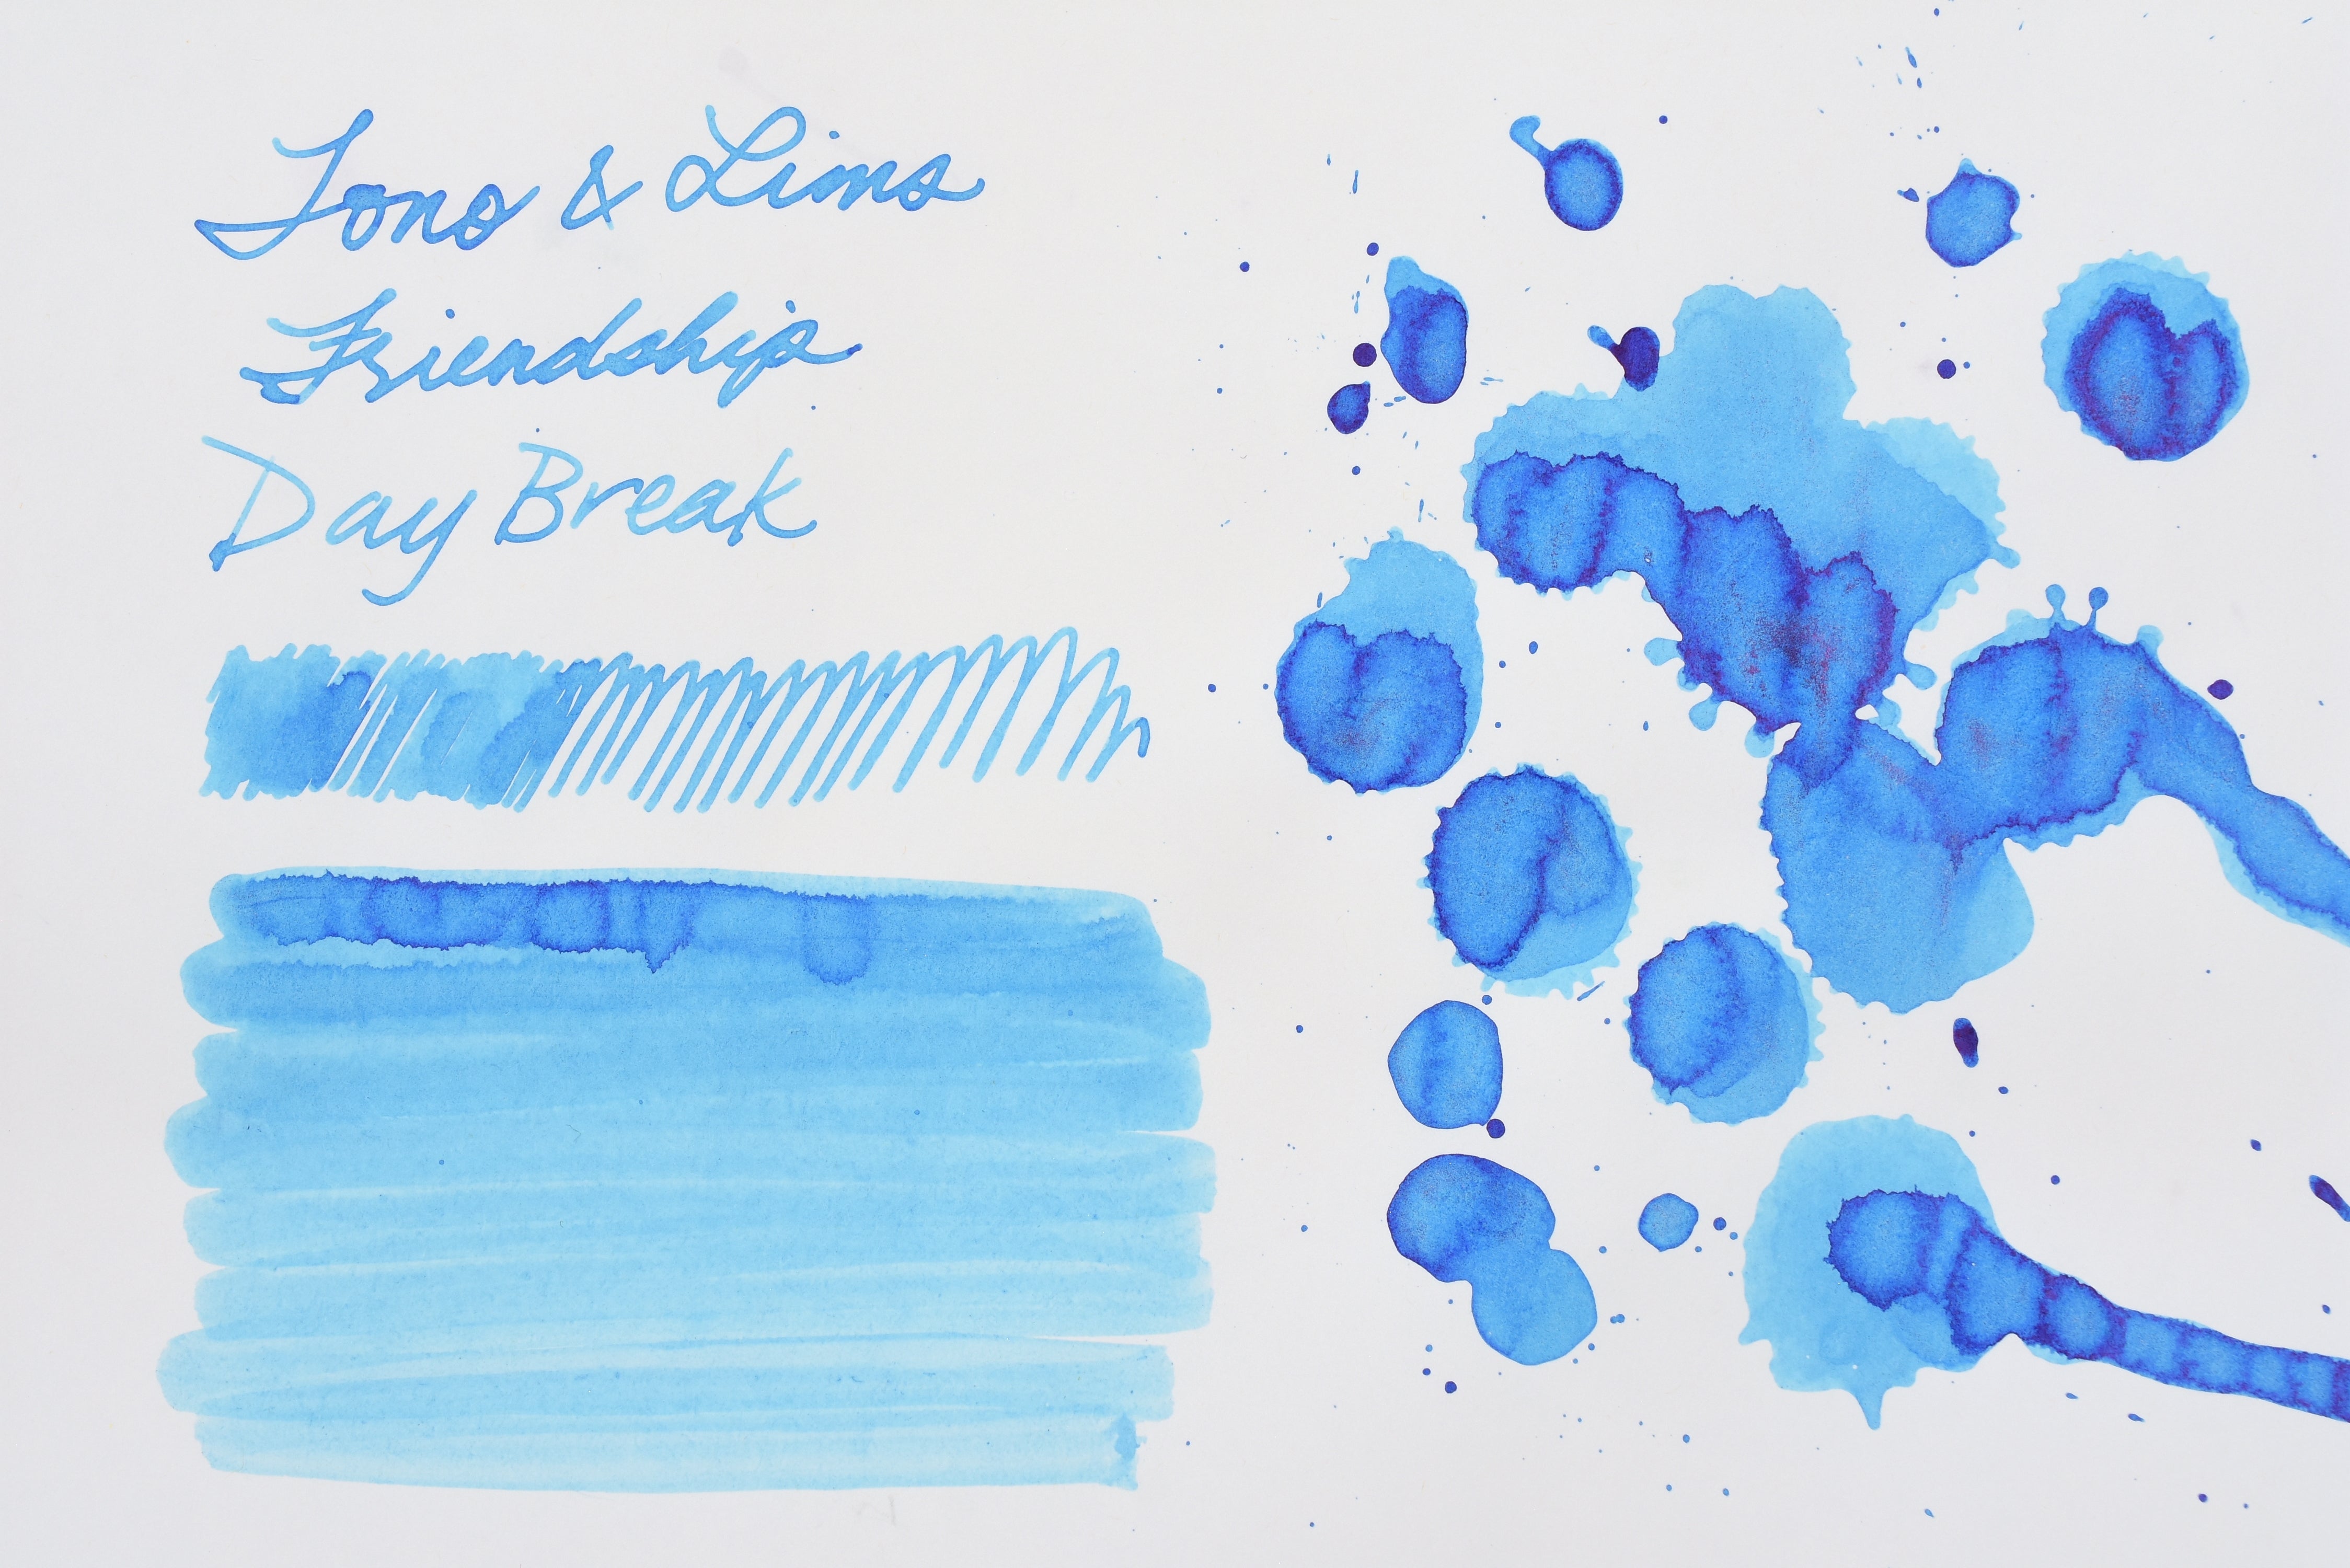 Tono & Lims
Friendship
Day Break